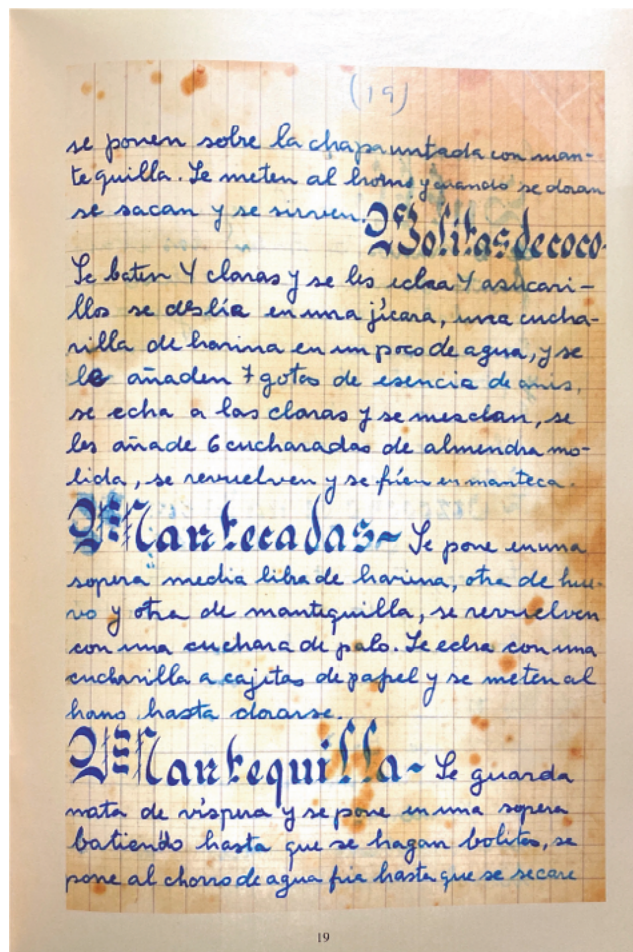 (19)
se ponen sobre la chapa untada con man-
tequilla. Se meten al horno y cuando se doran
se sacan y se sirven.
Bolitas de coco-
Se baten 4 claras y se les echa 4 asucari-
llos se deslía en una jícara, una cucha-
rilla de harina en un poco de agua, y se
le añaden 7 gotas de esencia de anis,
se echa a las claras y se mesclan, se
les añade 6 cucharadas de almendra mo-
lida, se revuelven y se frien en manteca.
Mantecadas~ Se pone en una
sopera media libra de harina, otra de hue-
vo y otra de mantequilla, se revuelven
con una cuchara de palo. Se echa con una
cucharilla a cajitas de papel y se meten al
horno hasta dorarse.
Mantequilla~ Se guarda
nata de víspera y se pone en una sopera
batiendo hasta que se hagan bolitas, se
pone al chorro de agua fria hasta que se secare
19